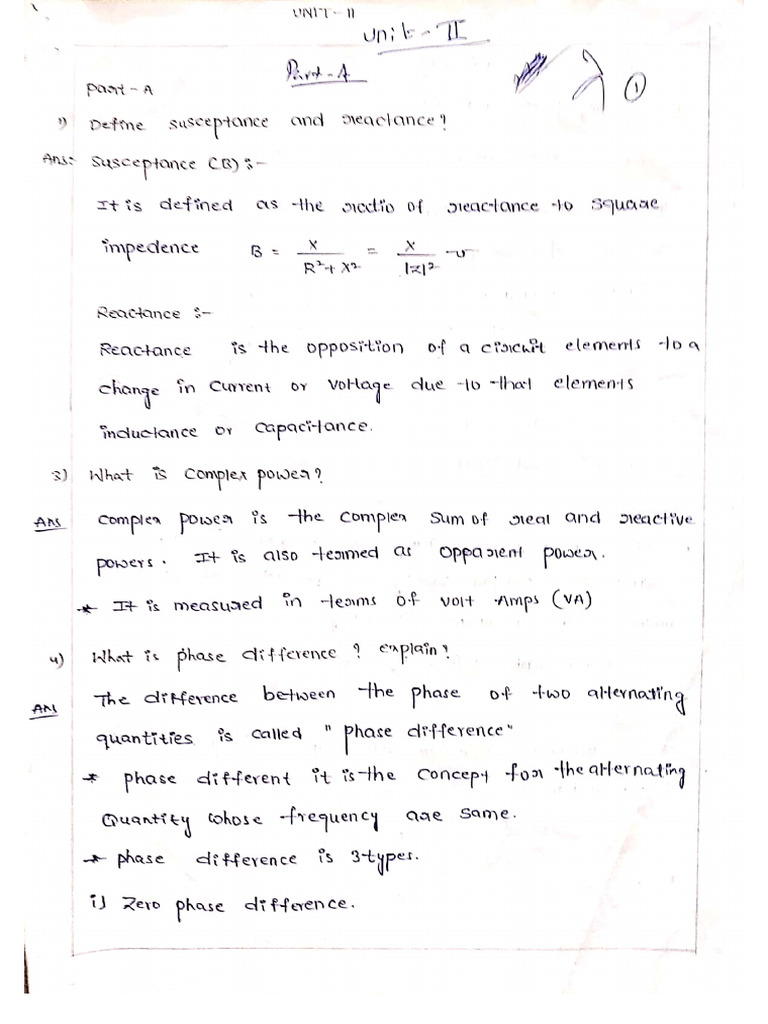 UNIT-II
Unit-II
Part-A
Part-A
①
1) Define susceptance and reactance?
Ans:- Susceptance (B) :-
It is defined as the ratio of reactance to square
impedence B = X / R²+X² = X / |z|² ℧
Reactance :-
Reactance is the opposition of a circuit elements to a
change in current or voltage due to that elements
inductance or capacitance.
3) What is complex power?
Ans complex power is the complex sum of real and reactive
powers. It is also termed as opparent power.
* It is measured in terms of volt Amps (VA)
4) What is phase difference ? explain?
Ans The difference between the phase of two alternating
quantities is called "phase difference"
* phase different it is the concept for the alternating
Quantity whose frequency are same.
* phase difference is 3-types.
i) Zero phase difference.